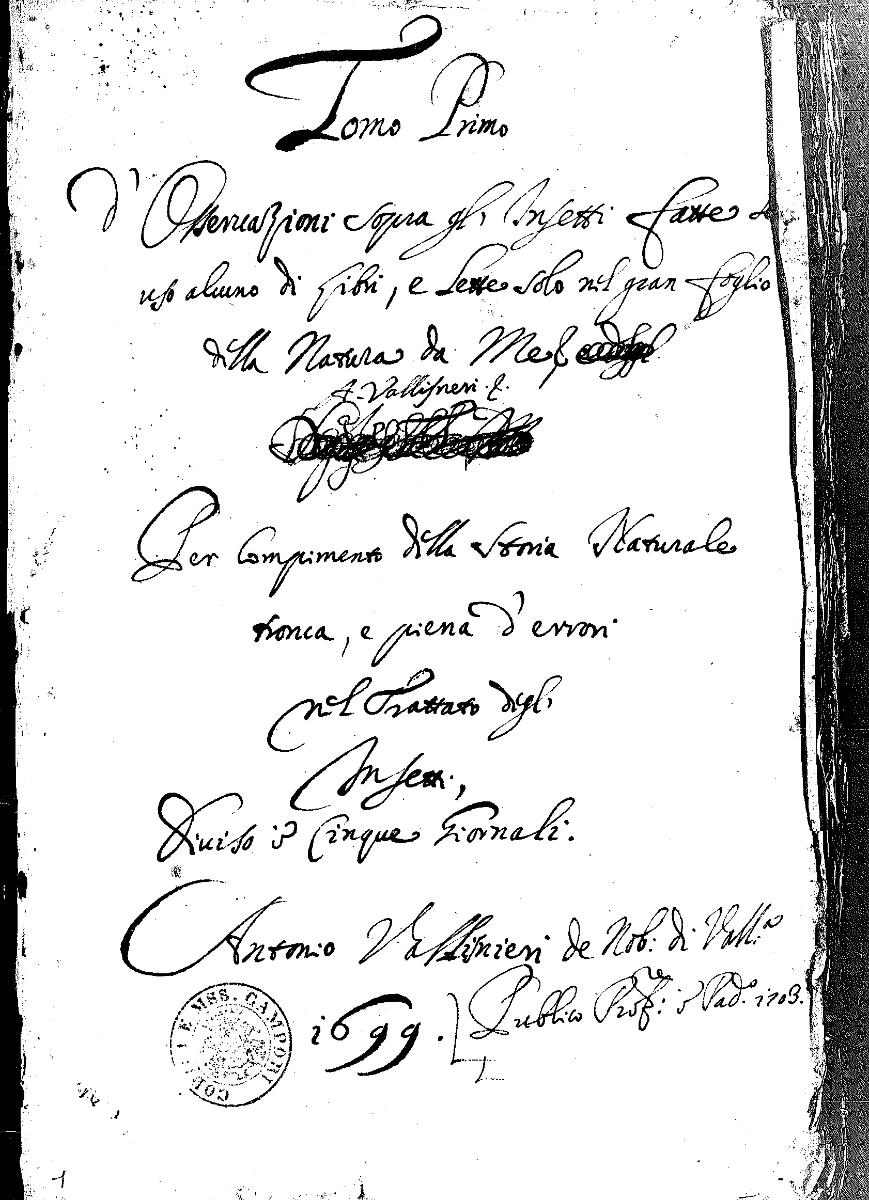 Tomo Primo
d'Osseruazioni sopra gl'Insetti fatte
uso alcuno di libri, e lette solo nel gran foglio
della Natura da Me
A. Vallisneri
Per Compimento della Storia Naturale
tronca, e piena d'errori
nel Trattato degl'
Insetti,
Diuiso in Cinque Giornali.
Antonio Vallisnieri de Nob: di Vall.a
1699. Publico Prof:re in Pad.a 1703.
COLL.E MSS. CAMPORI
1